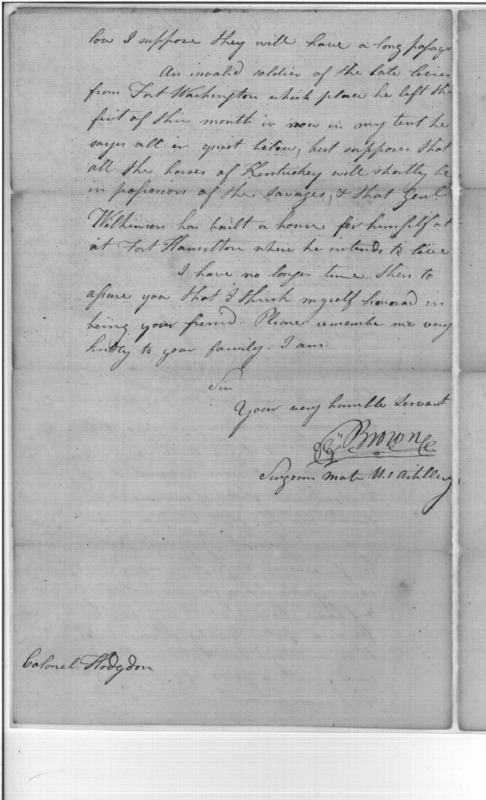 low I suppose they will have a long passage
An invalid soldier of the late levies
from Fort Washington which place he left the
first of this month is now in my tent he
sayes all is quiet below, but supposes that
all the horses of Kentuckey will shortly be
in possession of the savages, & that Genl
Wilkinson has built a house for himself at
at Fort Hamelton where he intends to live
I have no longer time then to
assure you that I think myself honored in
being your friend. Please remember me very
kindly to your family. I am
Sir
Your very humble Servant
Brown
Surgeons Mate U.S Artillery,
Colonel Hodgdon